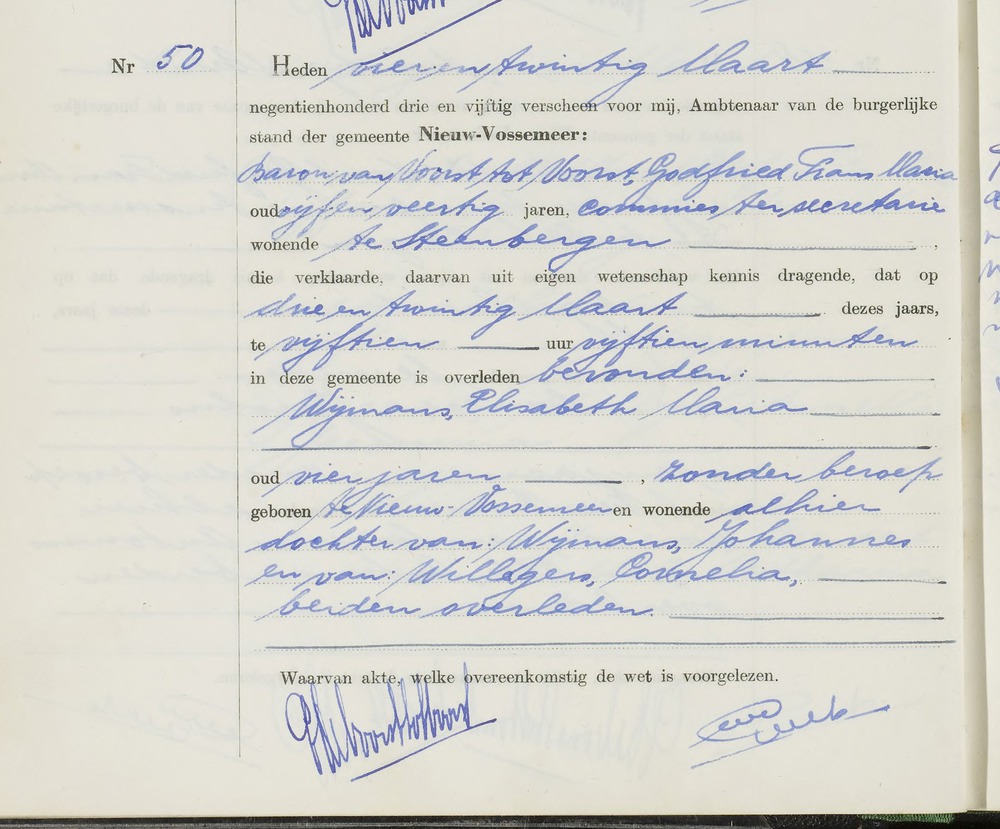 Nr 50
Heden vier en twintig Maart
negentienhonderd drie en vijftig verscheen voor mij, Ambtenaar van de burgerlijke
stand der gemeente Nieuw-Vossemeer:
Baron van Voorst tot Voorst, Godfried Frans Maria
oud vijf en veertig jaren, commies ter secretarie
wonende te Steenbergen ,
die verklaarde, daarvan uit eigen wetenschap kennis dragende, dat op
drie en twintig Maart dezes jaars,
te vijftien uur vijftien minuten
in deze gemeente is overleden bevonden:
Wijmans, Elisabeth Maria
oud vier jaren , zonder beroep
geboren te Nieuw-Vossemeer en wonende alhier
dochter van: Wijmans, Johannes
en van: Willegers, Cornelia,
beiden overleden.
Waarvan akte, welke overeenkomstig de wet is voorgelezen.